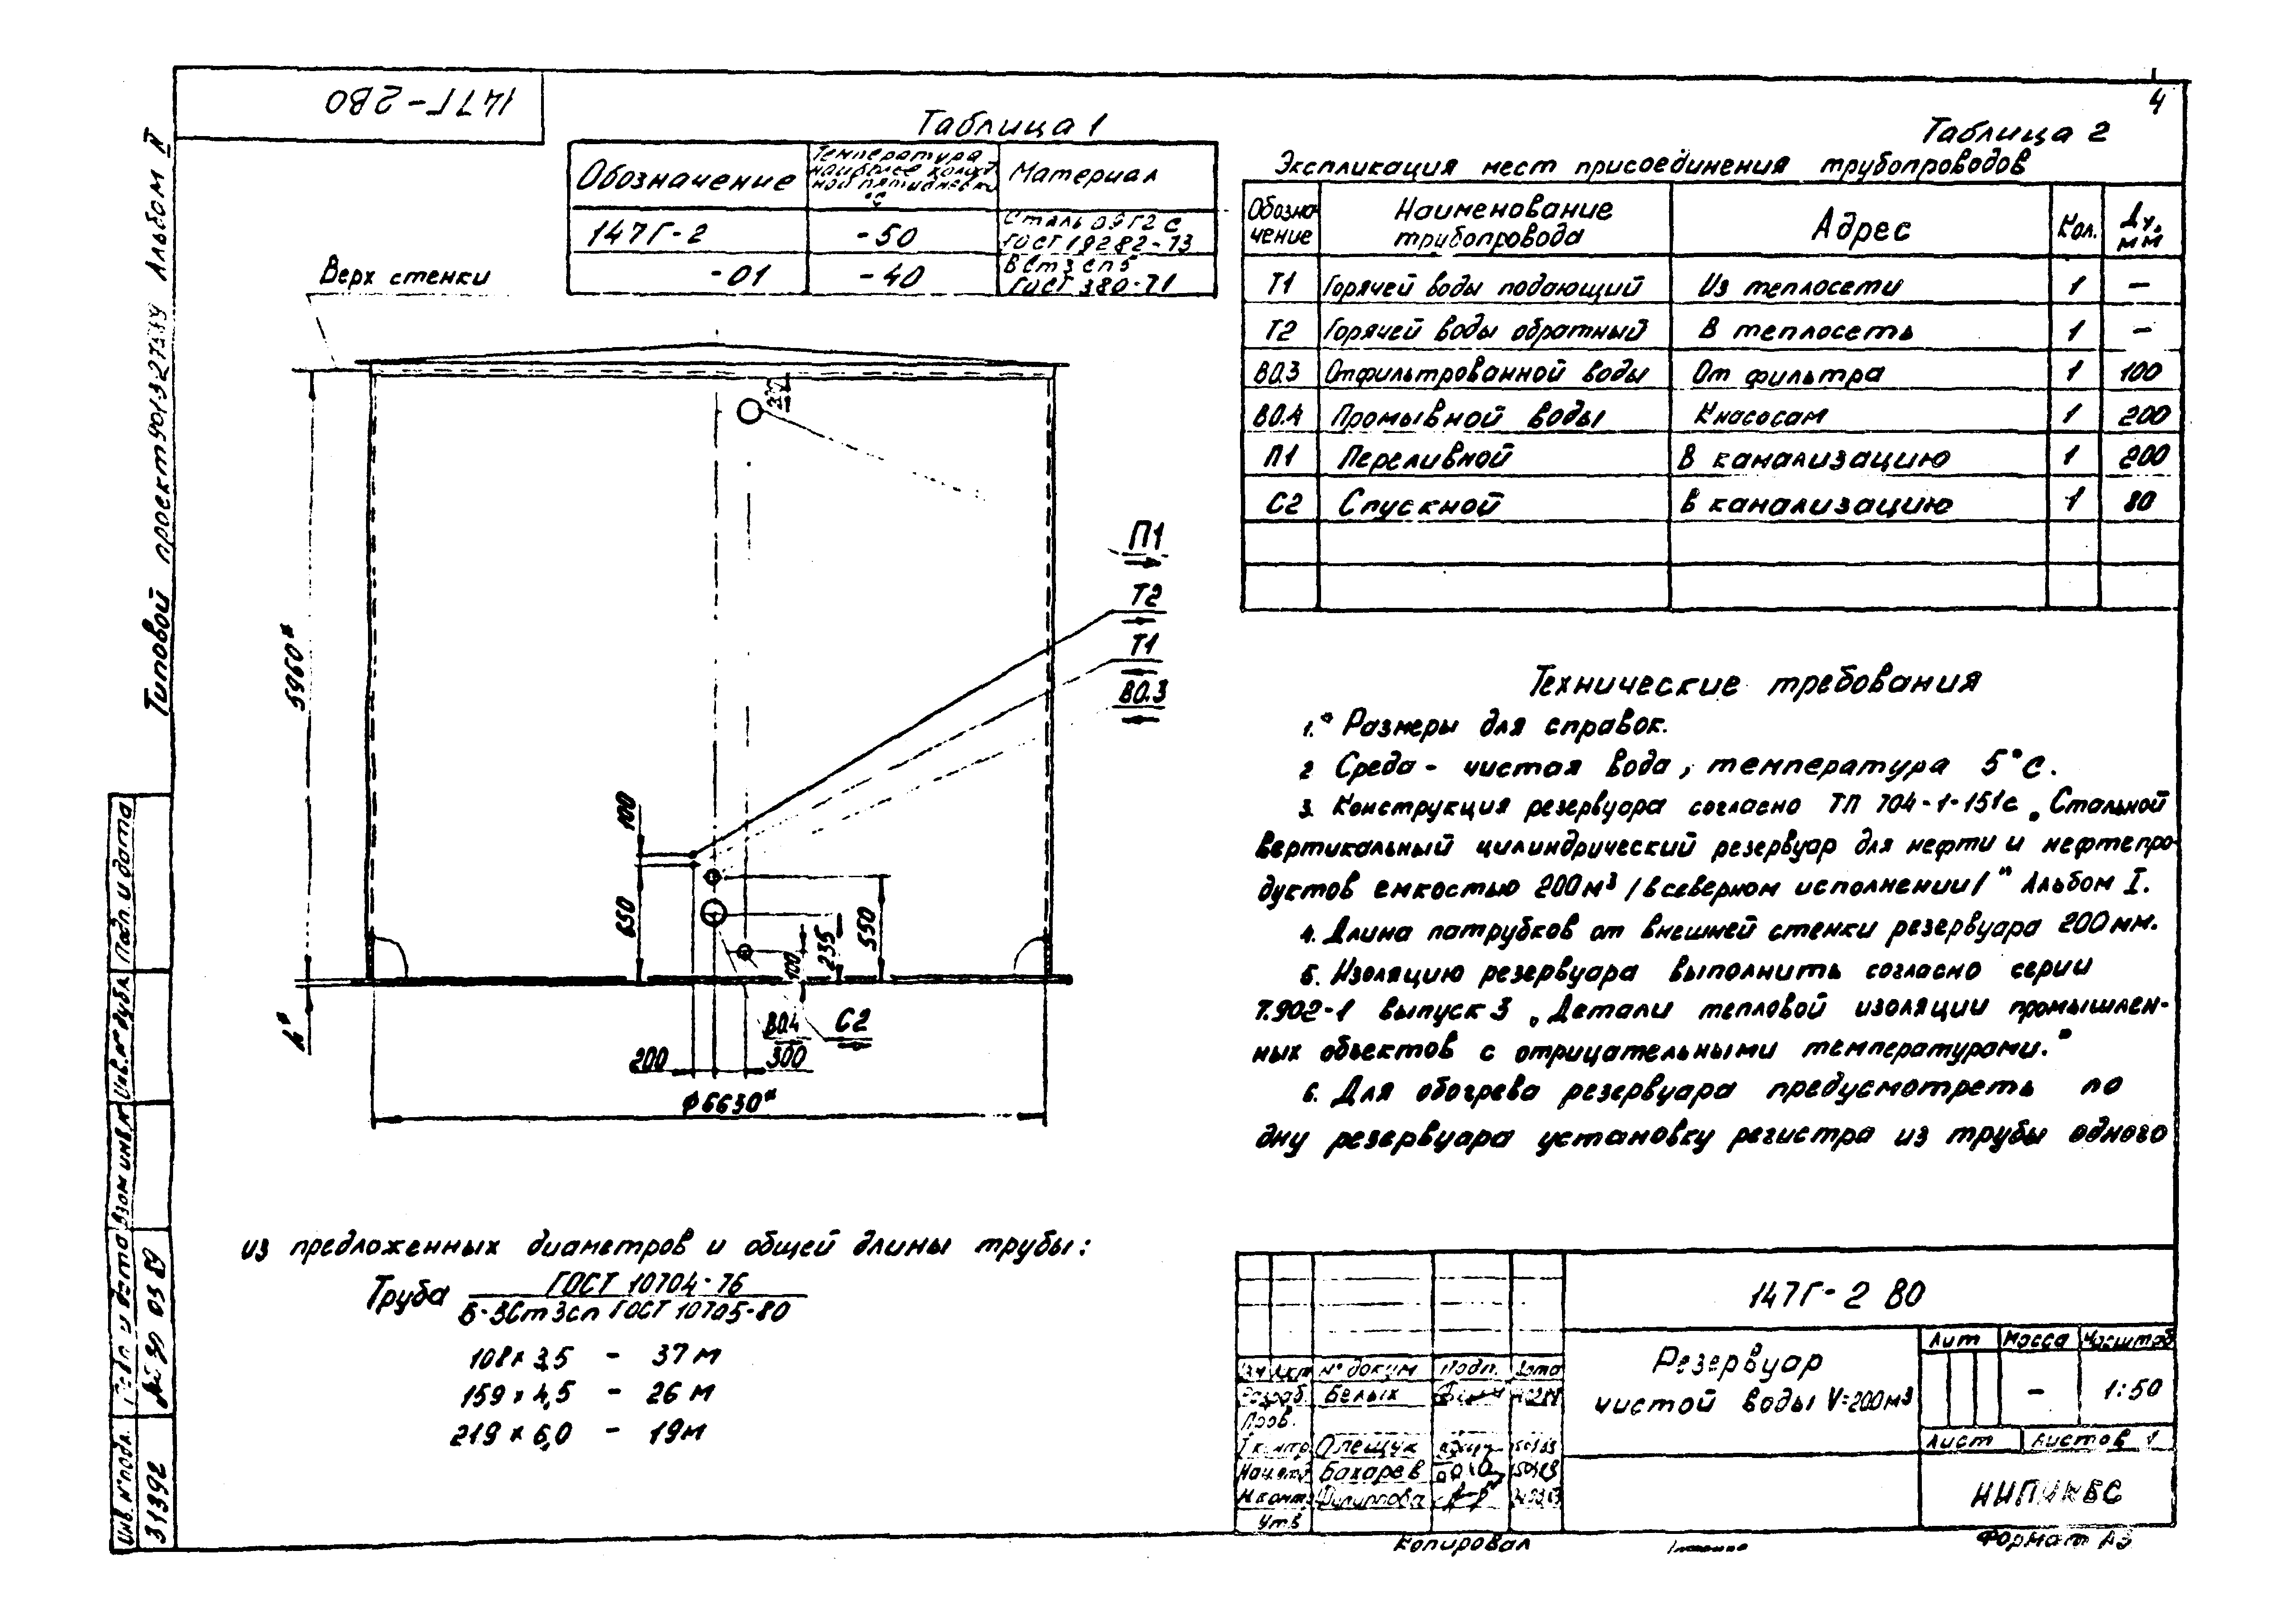 147Г-2В0
4
Типовой проект 901-3-
Альбом IV
Таблица 1
Обозначение
Температура наиболее холод
ной пятидневки
°С
Материал
147Г-2
-50
Сталь 09Г2С
ГОСТ 19282-73
-01
-40
ВСт3сп5
ГОСТ 380-71
Таблица 2
Экспликация мест присоединения трубопроводов
Обозна-
чение
Наименование
трубопровода
Адрес
Кол.
Ду,
мм
Т1 Горячей воды подающий Из теплосети 1 –
Т2 Горячей воды обратный В теплосеть 1 –
В0.3 Отфильтрованной воды От фильтра 1 100
В0.4 Промывной воды К насосам 1 200
П1 Переливной В канализацию 1 200
С2 Спускной В канализацию 1 80
Верх стенки
П1
Т2
Т1
В0.3
5960*
h*
100
650
100
235
550
В0.4
С2
200
300
ϕ6630*
Технические требования
1.* Размеры для справок.
2 Среда - чистая вода, температура 5°С.
3. Конструкция резервуара согласно ТП 704-1-151с „Стальной
вертикальный цилиндрический резервуар для нефти и нефтепро-
дуктов емкостью 200м³ /в северном исполнении/" Альбом I.
4. Длина патрубков от внешней стенки резервуара 200мм.
5. Изоляцию резервуара выполнить согласно серии
Т.902-1 выпуск 3 „Детали тепловой изоляции промышлен-
ных объектов с отрицательными температурами."
6. Для обогрева резервуара предусмотреть по
дну резервуара установку регистра из трубы одного
из предложенных диаметров и общей длины трубы:
Труба ГОСТ 10704-76
Б-ВСт3сп ГОСТ 10705-80
108×3,5 – 37м
159×4,5 – 26м
219×6,0 – 19м
147Г-2 В0
Резервуар
чистой воды V=200м3
Лит Масса Масштаб
– 1:50
Лист Листов 1
Изм Лист № докум Подп. Дата
Разраб. Белых
Пров.
Т.контр. Олещук
Бахарев
Н.контр. Филиппова
Утв
Копировал
Формат А3
Подп. и дата
Инв.№ дубл.
Взам инв.№
Подп и дата
Инв.№ подл.
31392